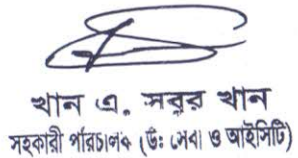 খান এ. সবুর খান
সহকারী পরিচালক (উঃ সেবা ও আইসিটি)